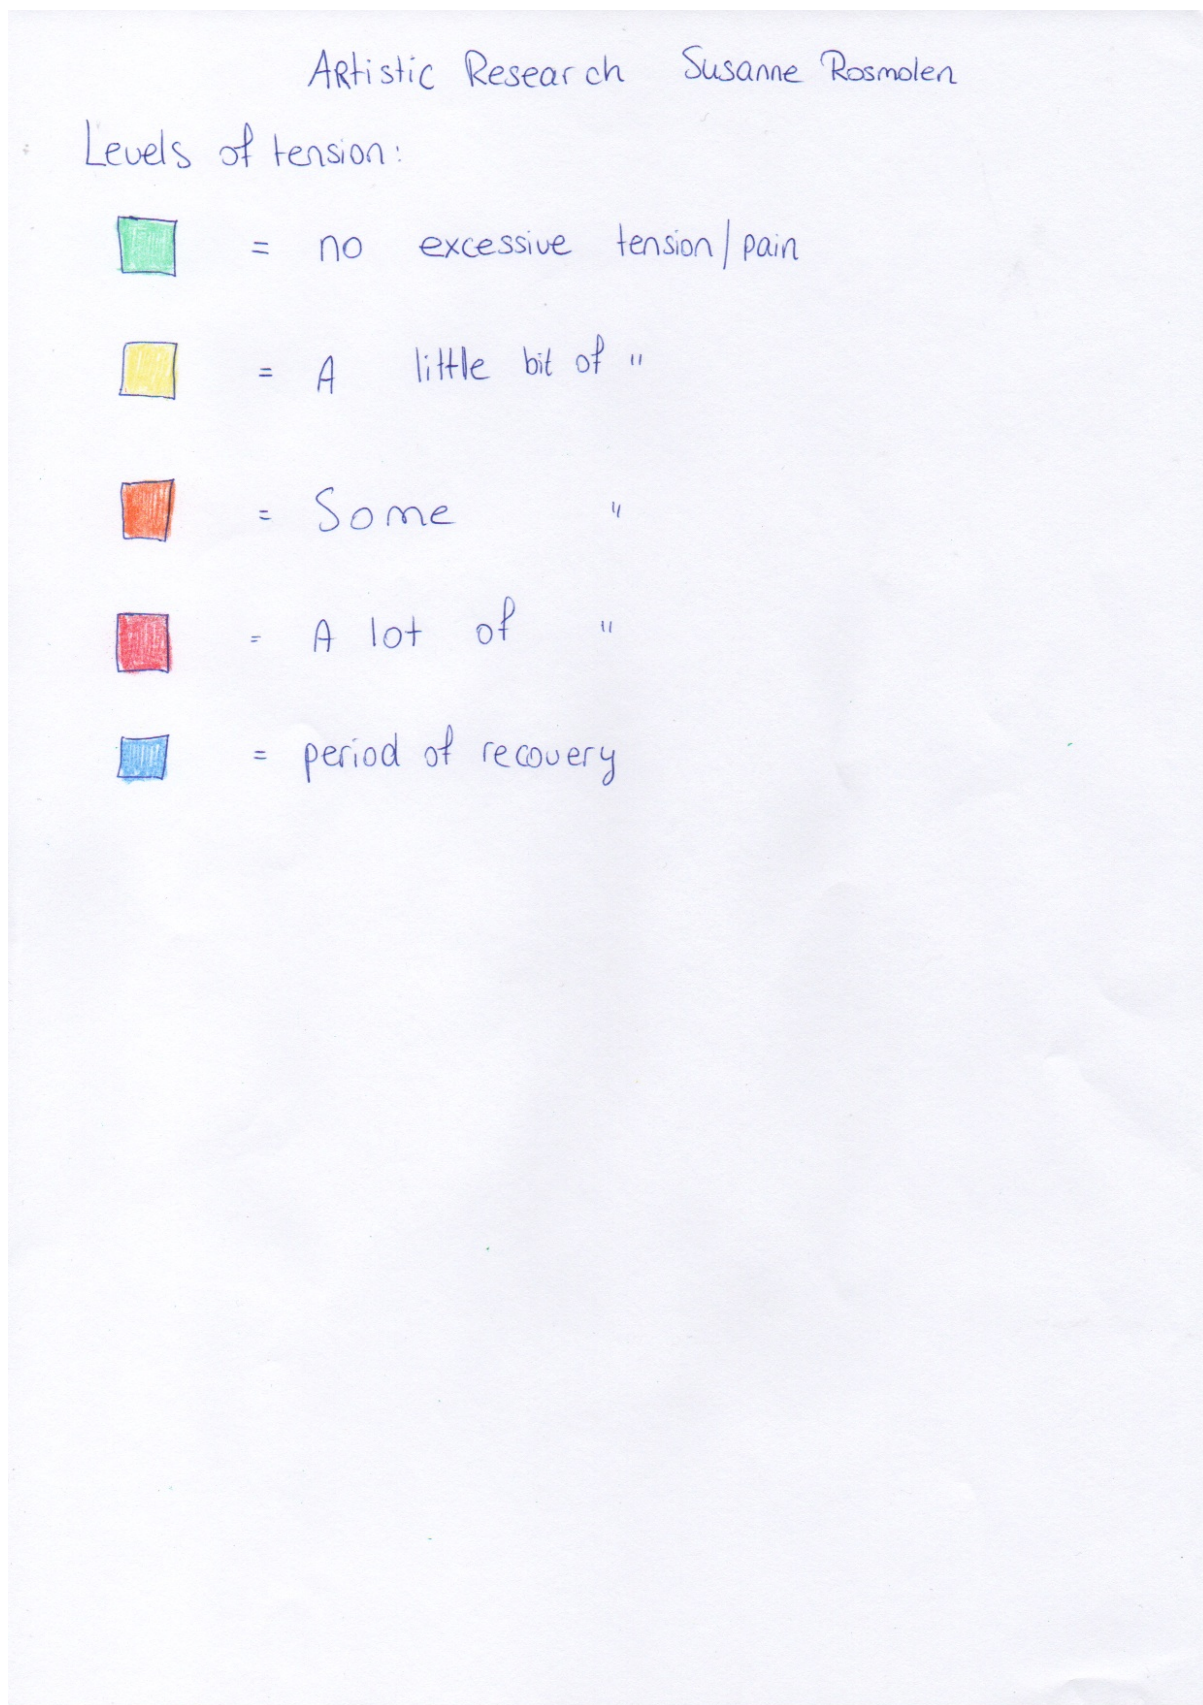 ARtistic Research Susanne Rosmolen
Levels of tension:
= no excessive tension/pain
= A little bit of "
= Some "
= A lot of "
= period of recovery